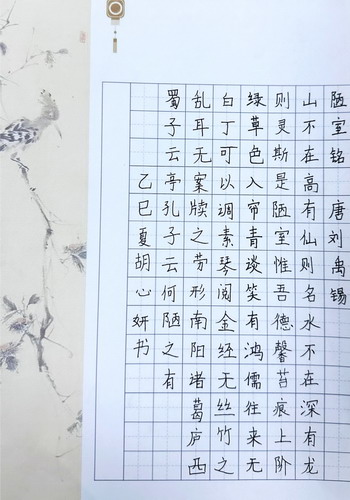 陋室铭 唐刘禹锡
山不在高有仙则名水不在深有龙
则灵斯是陋室惟吾德馨苔痕上阶
绿草色入帘青谈笑有鸿儒往来无
白丁可以调素琴阅金经无丝竹之
乱耳无案牍之劳形南阳诸葛庐西
蜀子云亭孔子云何陋之有
乙巳夏胡心妍书